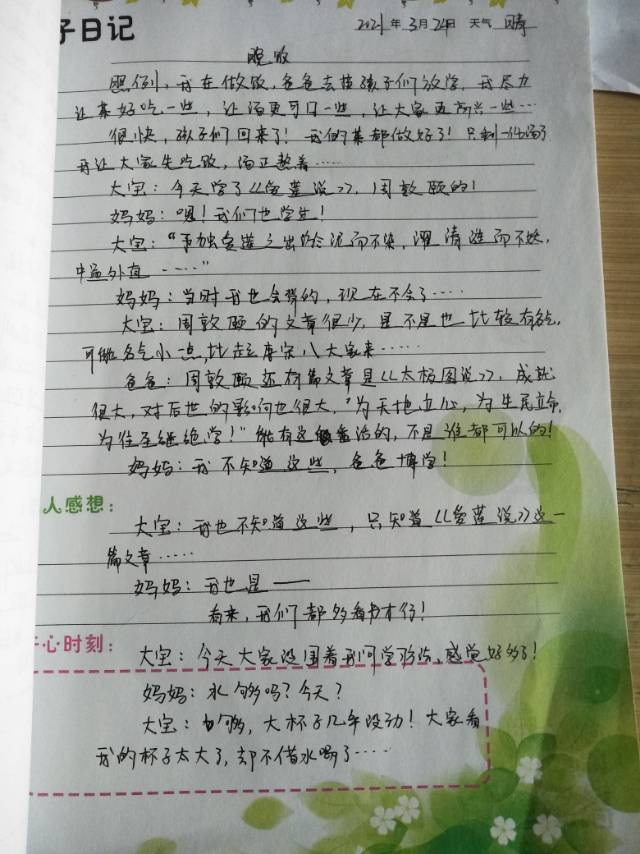 子日记 2021年3月24日 天气 晴
晚饭
照例，我在做饭，爸爸去接孩子们放学，我尽力
让菜好吃一些，让汤更可口一些，让大家更高兴一些…
很快，孩子们回来了！我的菜都做好了！只剩一个汤了
我让大家先吃饭，汤正熬着……
大宝：今天学了《爱莲说》，周敦颐的！
妈妈：嗯！我们也学生！
大宝：“予独爱莲之出淤泥而不染，濯清涟而不妖，
中通外直……”
妈妈：当时我也会背的，现在不会了……
大宝：周敦颐的文章很少，是不是也比较有名，
可能名气小点，比起唐宋八大家来……
爸爸：周敦颐还有篇文章是《太极图说》，成就
很大，对后世的影响也很大，“为天地立心，为生民立命，
为往圣继绝学！”能有这话的，不是谁都可以的！
妈妈：我不知道这些，爸爸博学！
人感想：
大宝：我也不知道这些，只知道《爱莲说》这一
篇文章……
妈妈：我也是——
看来，我们都多看书才行！
心时刻： 大宝：今天大家没围着我问学习，感觉好多了！
妈妈：水够吗？今天？
大宝：够，大杯子几乎没动！大家看
我的杯子太大了，却不借水喝了……